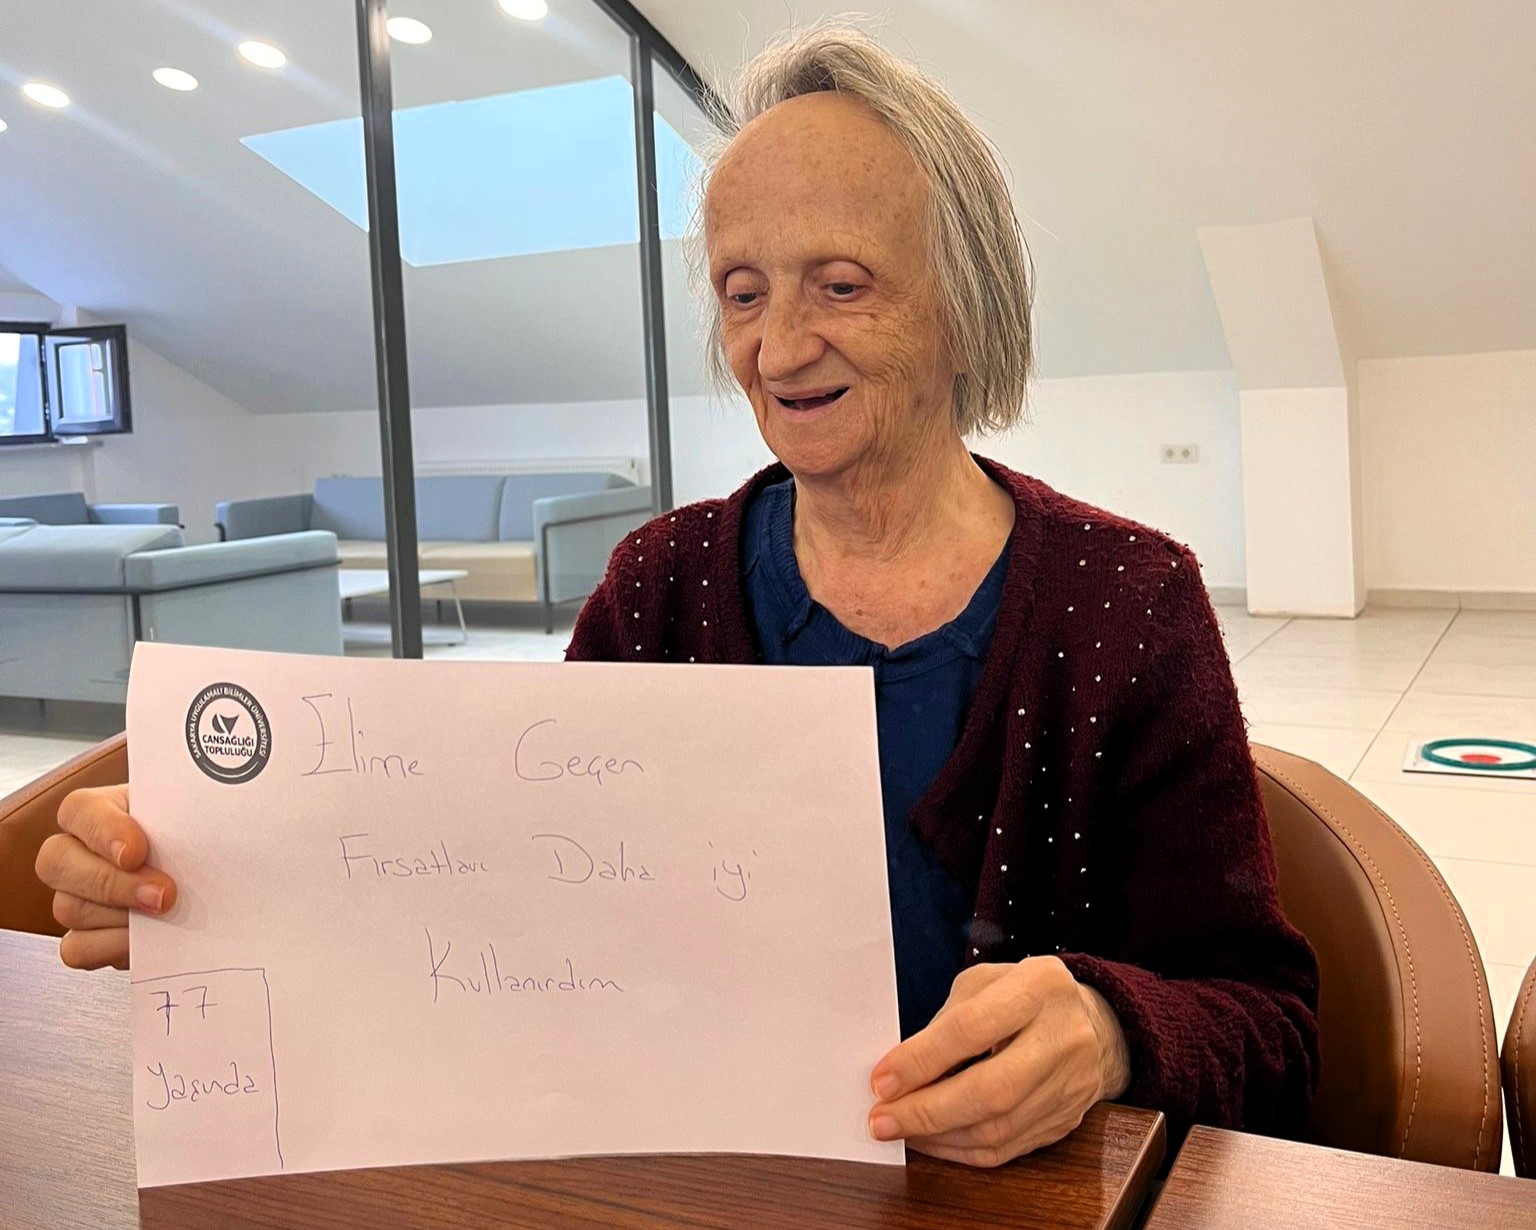 SAKARYA UYGULAMALI BİLİMLER ÜNİVERSİTESİ
CANSAĞLIĞI
TOPLULUĞU
Elime Geçen
Fırsatları Daha iyi
Kullanırdım
77
Yaşında